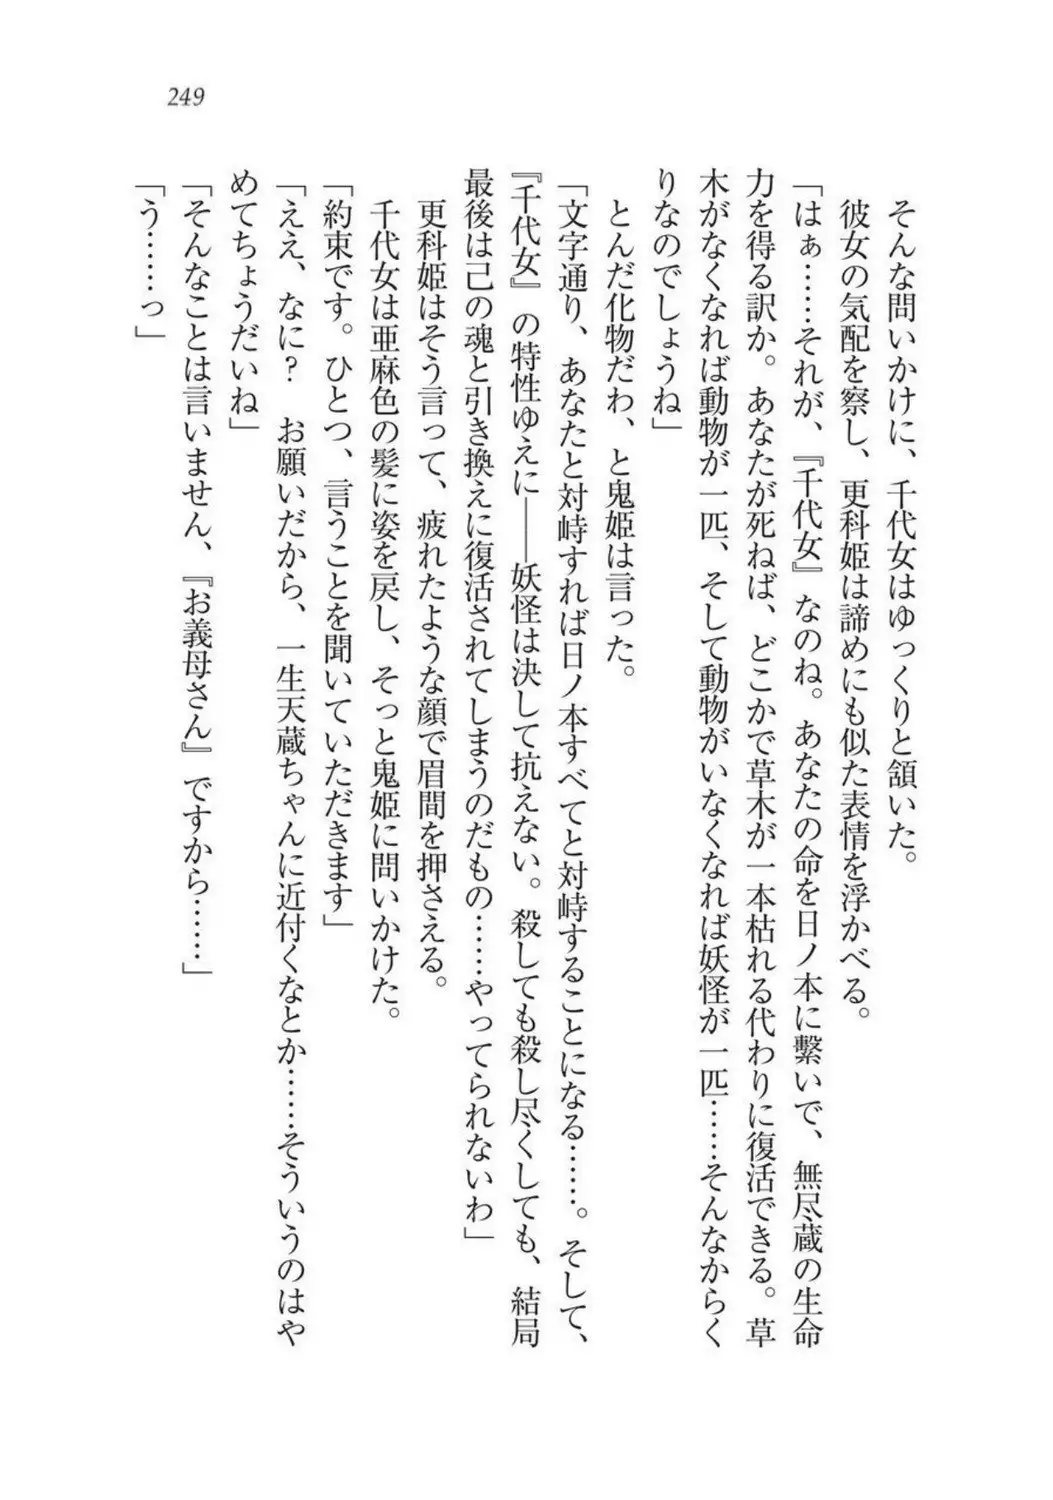 249
そんな問いかけに、千代女はゆっくりと頷いた。
彼女の気配を察し、更科姫は諦めにも似た表情を浮かべる。
「はぁ……それが、『千代女』なのね。あなたの命を日ノ本に繋いで、無尽蔵の生命
力を得る訳か。あなたが死ねば、どこかで草木が一本枯れる代わりに復活できる。草
木がなくなれば動物が一匹、そして動物がいなくなれば妖怪が一匹……そんなからく
りなのでしょうね」
とんだ化物だわ、と鬼姫は言った。
「文字通り、あなたと対峙すれば日ノ本すべてと対峙することになる……。そして、
『千代女』の特性ゆえに――妖怪は決して抗えない。殺しても殺し尽くしても、結局
最後は己の魂と引き換えに復活されてしまうのだもの……やってられないわ」
更科姫はそう言って、疲れたような顔で眉間を押さえる。
千代女は亜麻色の髪に姿を戻し、そっと鬼姫に問いかけた。
「約束です。ひとつ、言うことを聞いていただきます」
「ええ、なに？　お願いだから、一生天蔵ちゃんに近付くなとか……そういうのはや
めてちょうだいね」
「そんなことは言いません、『お義母さん』ですから……」
「う……っ」